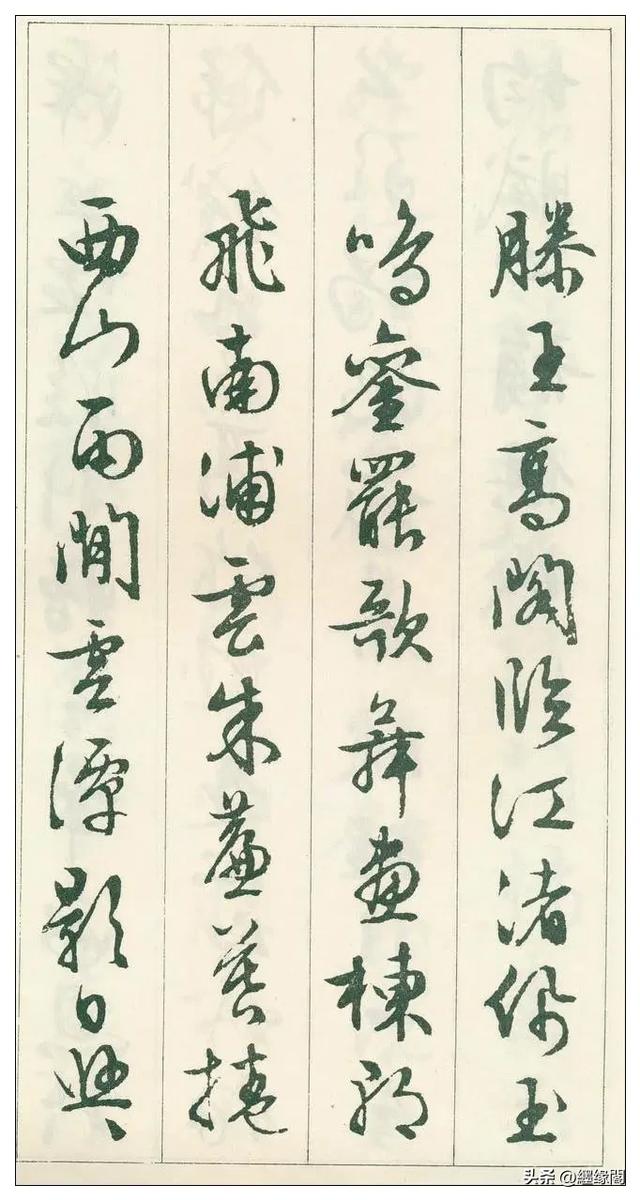 滕王高閣臨江渚佩玉
鳴鑾罷歌舞畫棟朝
飛南浦雲朱簾暮捲
西山雨閒雲潭影日悠々
头条 @纒缘閣